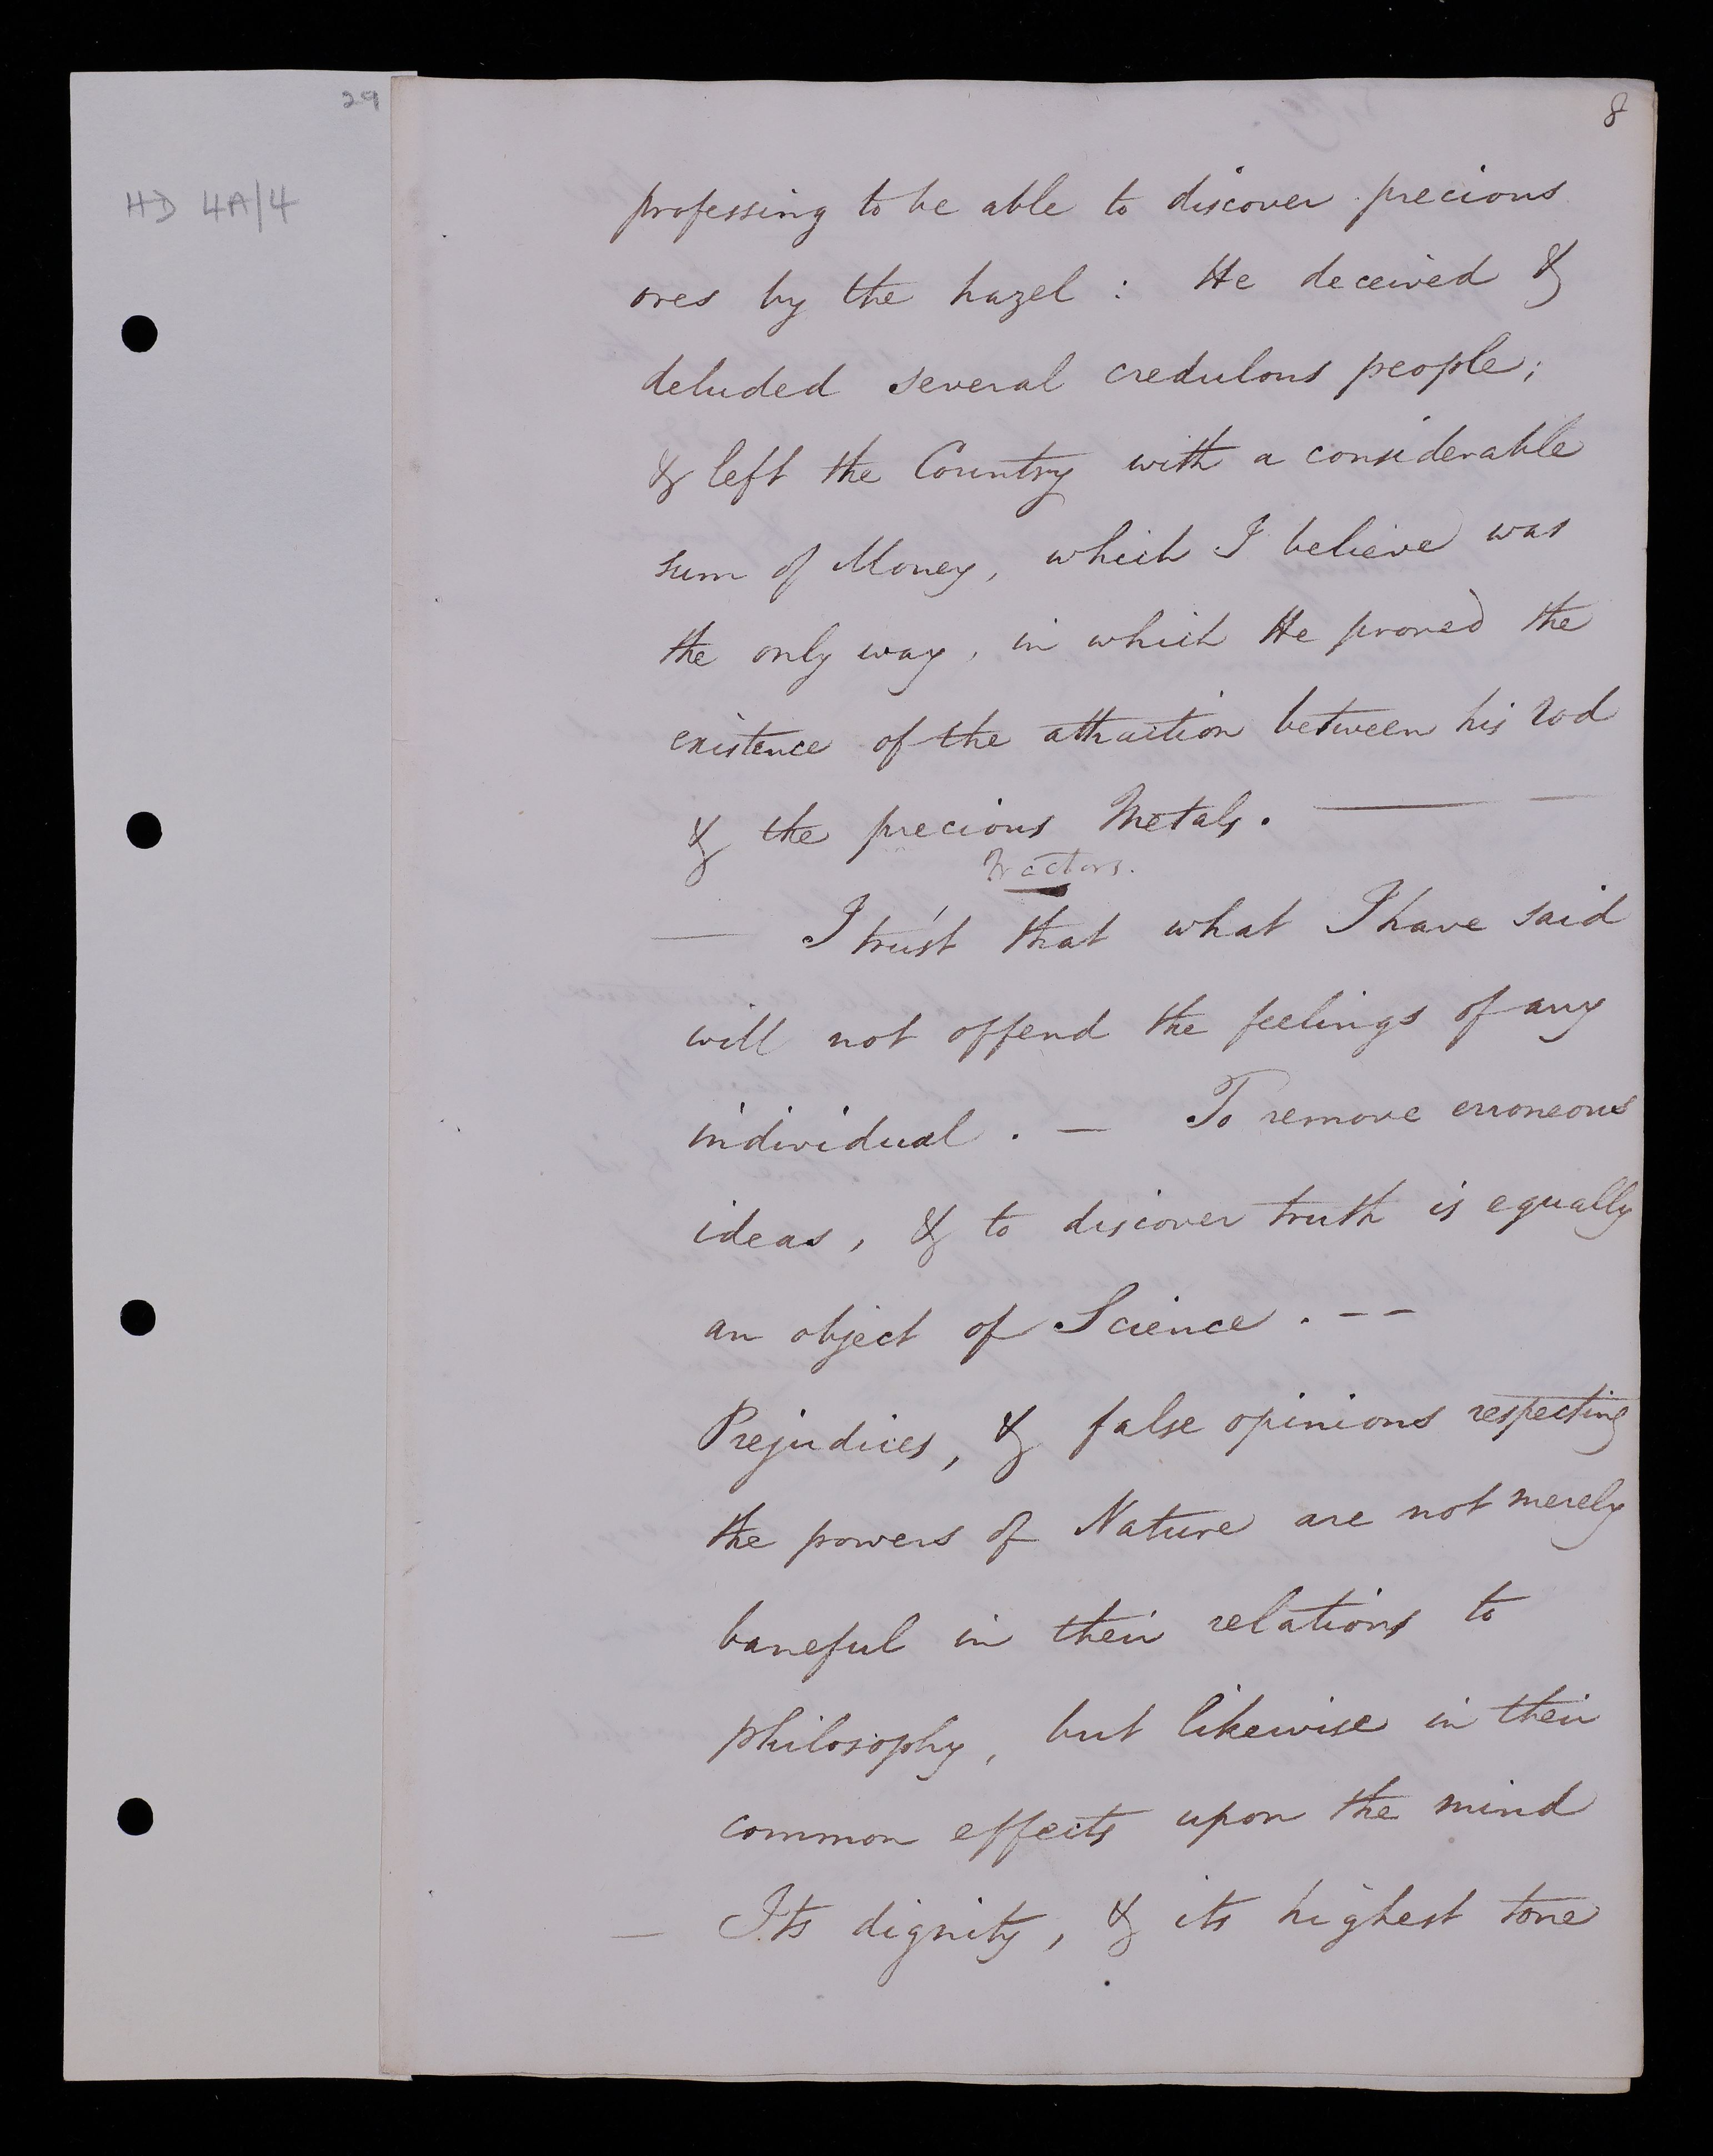 29
8
HD 4A/4
professing to be able to discover precious
ores by the hazel : He deceived &
deluded several credulous people;
& left the Country with a considerable
sum of Money, which I believe was
the only way, in which He proved the
existence of the attraction between his rod
& the precious Metals. —
Tractors.
— I trust that what I have said
will not offend the feelings of any
individual . — To remove erroneous
ideas, & to discover truth is equally
an object of Science . - -
Prejudices, & false opinions respecting
the powers of Nature are not merely
baneful in their relations to
philosophy, but likewise in their
common effects upon the mind
— Its dignity, & its highest tone